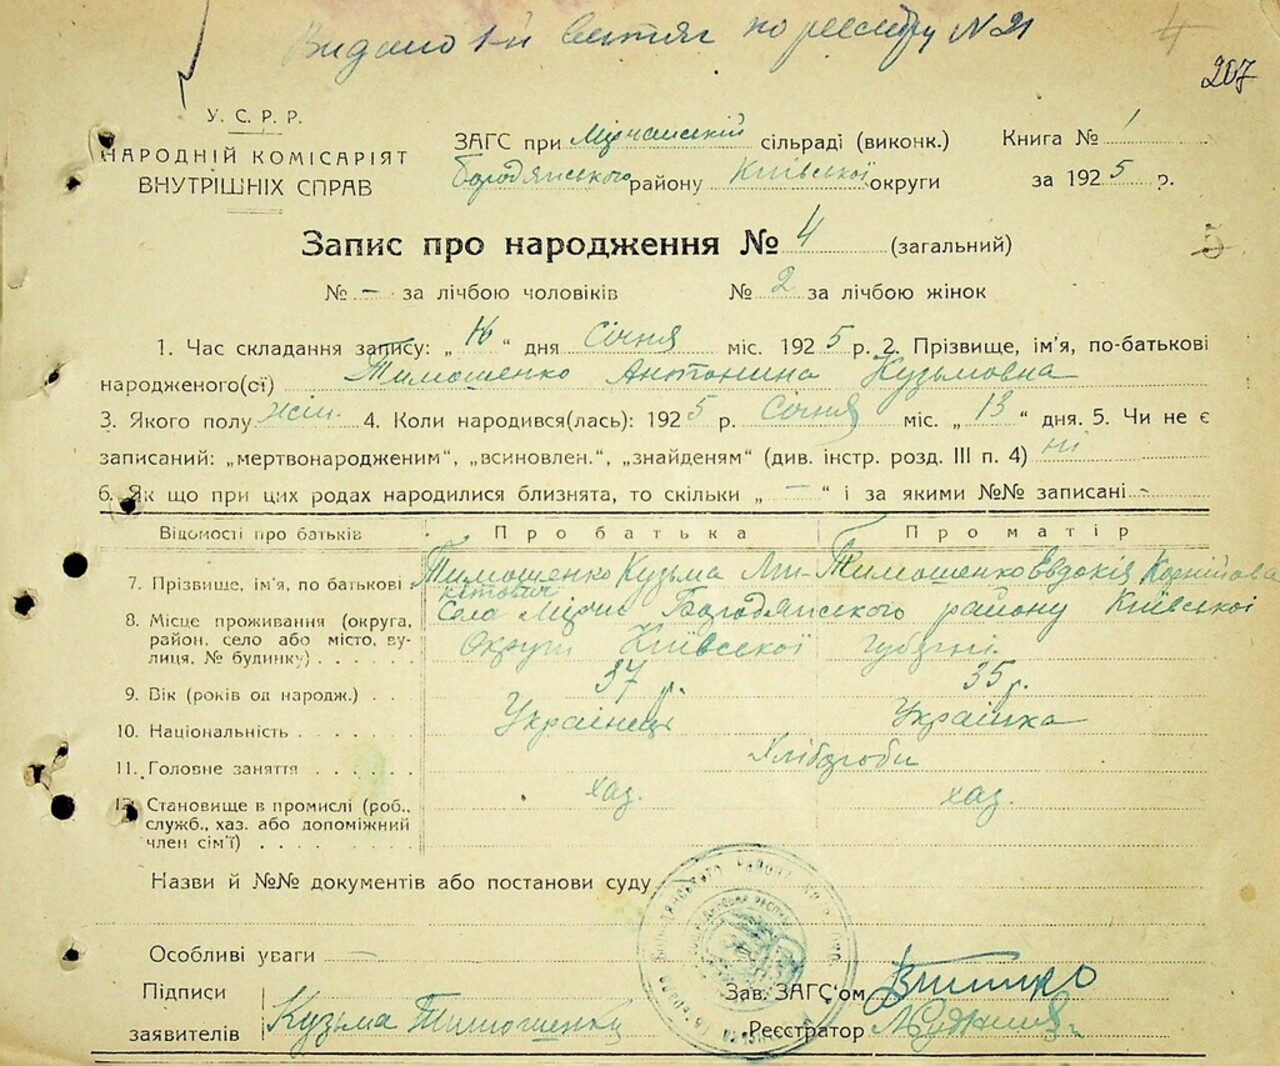 Видано 1-й витяг по реєстру № 21
4
207
У. С. Р. Р.
НАРОДНІЙ КОМІСАРІЯТ
ВНУТРІШНІХ СПРАВ
ЗАГС при сільраді (виконк.) Книга № 1
Бородянського району Київської округи за 1925 р.
Запис про народження № 4 (загальний)
5
№ - за лічбою чоловіків № 2 за лічбою жінок
1. Час складання запису: „16“ дня Січня міс. 1925 р. 2. Прізвище, ім'я, по-батькові
народженого(ої) Тимошенко Антонина Кузьмовна
3. Якого полу жін. 4. Коли народився(лась): 1925 р. Січня міс. „13“ дня. 5. Чи не є
записаний: „мертвонародженим“, „всиновлен.“, „знайденям“ (див. інстр. розд. III п. 4) ні
6. Як що при цих родах народилися близнята, то скільки „ — “ і за якими №№ записані -
Відомості про батьків Про батька Про матір
7. Прізвище, ім'я, по батькові Тимошенко Кузьма Ми- Тимошенко Евдокія Корнійовна
китович
8. Місце проживання (округа, Села Мірча Бородянського району Київської
район, село або місто, ву- Округи Київської губерні.
лиця, № будинку)
9. Вік (років од народж.) 37 р. 35 р.
10. Національність Украінець Украінка
11. Головне заняття Хлібороби
12. Становище в промислі (роб., хаз. хаз.
служб., хаз. або допоміжний
член сім'ї)
Назви й №№ документів або постанови суду
Особливі уваги —
Підписи Зав. ЗАГС'ом
заявителів Кузьма Тимошенко Реєстратор